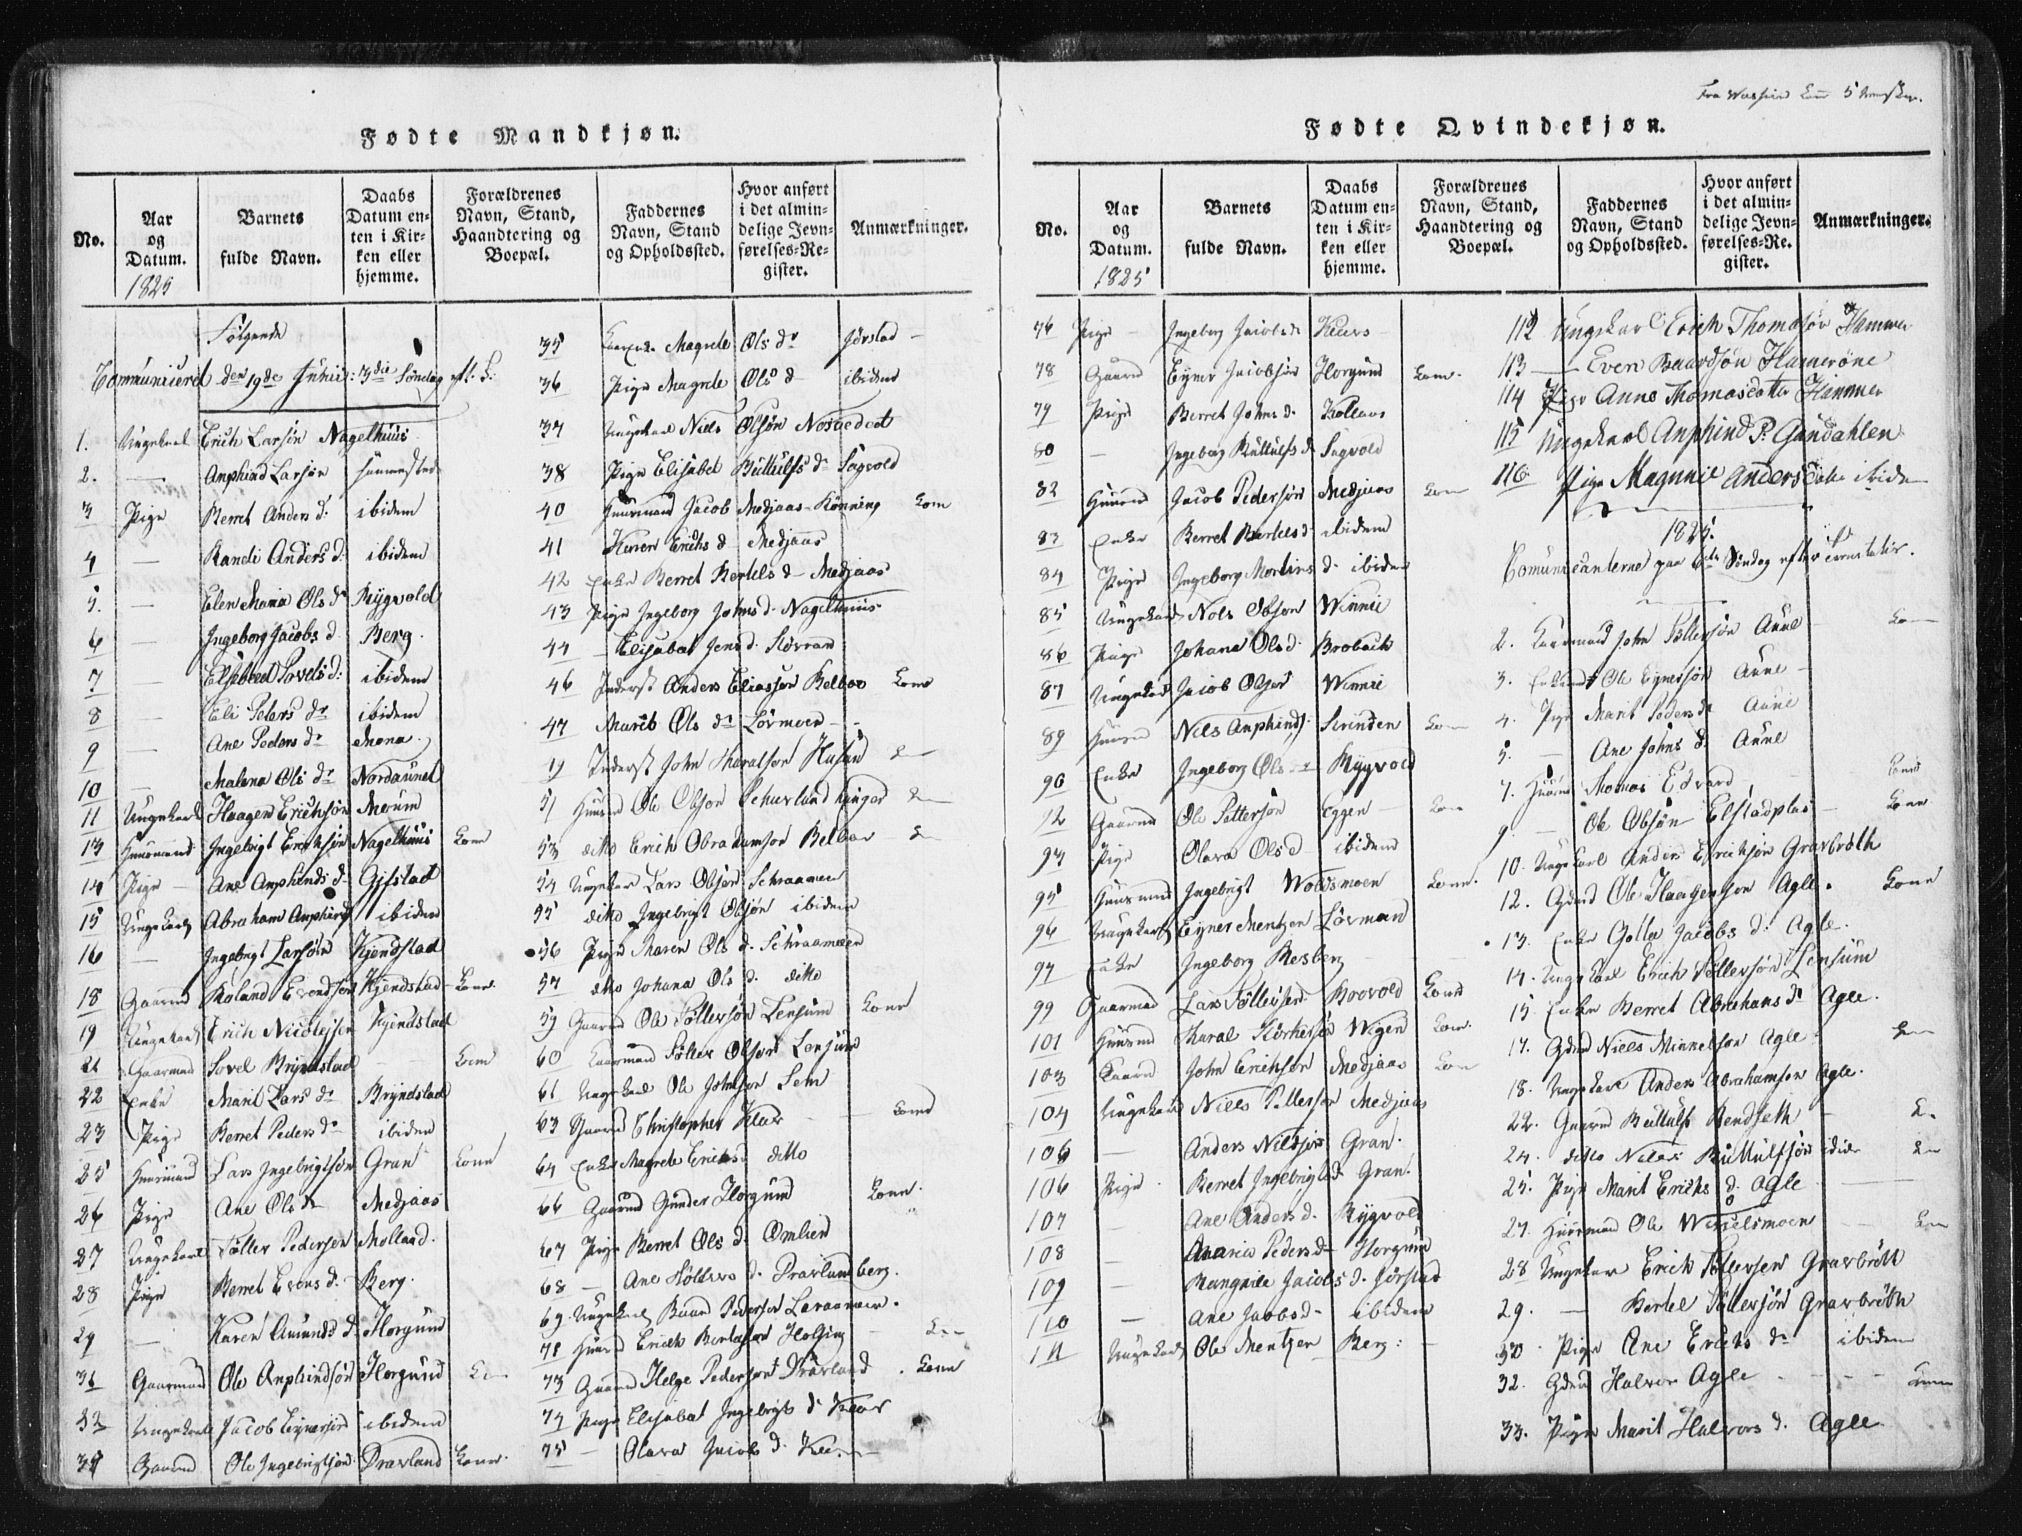 Fødte Mandkjøn.
No.
Aar og Datum.
Barnets fulde Navn.
Daabs Datum enten i Kirken eller hjemme.
Forældrenes Navn, Stand, Haandtering og Boepæl.
Faddernes Navn, Stand og Opholdssted.
Hvor anført i det almindelige Jevnførelses-Register.
Anmærkninger.
1825
Følgende
Communiceret den 19de Junii: 3die Søndag
1. Ungekarl Erich Larsön Nagelhuus
2. — Anphind Larsön
3 Pige Berret Anders d: ibidem
4 — Randi Anders d: ibidem
5. — Elen Maria Ols dr Rygvold
6 — Ingeborg Jacobs d. Berg.
7 — Elsebeth Povels d: ibidem
8 — Eli Peters dr ibidem
9 — Ane Peders dr Mona.
10 — Malena Ols dr Nordaunet
11 Ungekarl Haagen Erichsön Merum
13 Huusmand Ingebrigt Erichsön Nagelhuus Kone
14 Pige — Ane Anphinds d. Gifstad
15 Ungekarl Abraham Anphinds ibidem
16 — Ingebrigt Larsön Kjendstad
18 Gaarmd Roland Evendsen Kjendstad Kone.
19 Ungekarl Erich Nicolejsen Kjendstad
21 Gaarmd Povel Bryndstad Kone
22 Enke Marit Lars dr Bryndstad
23 Pige Berret Peders dr ibidem
25 Huusmand Lars Ingebrigtsön Gran Kone
26 Pige Ane Ols dr Medjaas
27 Ungekarl Töller Pedersen Molland.
28 Pige Berret Evens d. Berg.
29 — Karen Amunds d. Horgund
31 Gaarmand Ole Anphindsön Horgund
33 Ungekarl Jacob Eynersön ibidem
34 Gaarmd Ole Ingebrigtsön Dravland Kone.
35 Magrete Ols dr Jörstad —
36 Pige Magrete Ols d ibidem
37 Ungekarl Niels Olsön
38 Pige Elisabet Buttulfs d Sagvold
40 Huusmand Jacob Medjaas-Rönning Kone
41 Karen Erichs d Medjaas
42 Enke Berret Bertels d — Medjaas
43 Pige Ingeborg Johns d. Nagelhuus
44 — Elisabet Jens d.
46 Inderst Anders Eliassen Belbo Kone
47 Marit Ols dr Lörmoen
49 Inderst John Haralsen
51 Huusmd Ole Olsön
53 ditto Erich Abrahamsen
54 Ungekar Lars Olsön Schraamoen
55 ditto Ingebrigt Olsjön ibidem
56 Pige Maren Ols d. Schraamoen
57 dito Johana Ols d. ditto
59 Gaarmd Ole Töllersön Lensum Kone
60 Gaarmand Töller Olsøn Lensum
61 Ungekarl Ole Johnsen Sem
63 Gaarmd Christopher Klar Kone
64 Enke Magrete Erichsd ditto
66 Gaarmd Gunder Horgund Kone.
67 Pige Berret Ols d. Omlien
68 — Ane
69 Ungekarl Baar Pedersen
71 Huusmd Erich
73 Gaarmd Helge Pedersen Dravland. Kone
74 Pige Elisabet Ingebrigts d Klar
75 — Olava Jacobs d.
Fødte Qvindekjøn.
No.
Aar og Datum.
Barnets fulde Navn.
Daabs Datum enten i Kirken eller hjemme.
Forældrenes Navn, Stand, Haandtering og Boepæl.
Faddernes Navn, Stand og Opholdssted.
Hvor anført i det almindelige Jevnførelses-Re. gister.
Anmærkninger.
1825
76 Pige — Ingeborg Jacobsd
78 Gaarmd Eyner Jacobsön Horgund Kone.
79 Pige Berret Johns d.
80 — Ingeborg Buttulfs d Sagvold
82 Huusmd Jacob Pedersön Medjaas Kone
83 Enke Berret Bertels d ibidem
84 Pige Ingeborg Mortins d. ibidem
85 Ungekarl Nols Olsøn Winnie
86 Pige Johana Ols d. Brobach
87 Ungekarl Jacob Olsön Winnie
89 Huusmd Nils Anphinds
90 Enke Ingeborg Ols Rygvold
12 Gaarmd Ole Pettersön Eggen
93 Pige Olava Ols d ibidem
95 Huusmand Ingebrigt Woldsmoen Kone.
96 Ungekarl Eyner Mentzen
97 Enke Ingeborg Resberg
99 Gaarmand Lars Tölleysen Boovold Kone
101 Huusmd Haral Wigen Kone.
103 Gaarmd John Erichsön Medjaas
104 Ungekarl Niels Pettersen Medjaas
106 — Anders Nilssjön Gran.
106 Pige Berret Ingebrigts d Gran.
107 — Ane Anders d. Rygvold
108 — Maria Peders d Horgum
109 — Jacobs d. Jörstad
110 — Ane Jacobs d — ibidem
111 Ungekarl Ole Mentzen Berg:
112 Ungekarl Erich Thomasön Hammer
113 — Even Baardsjön Hameröne
114 Pige Anne Thomasdatter Hammer
115 Ungekarl Anphind P. Gundahlen
116 Pige Magnnie Anders
1825.
Comunicanterne paa 6te Söndag efter Trinitatis.
2. Gaarmand John Töllersön Aune
3. Ole Eynersön Aune —
4. Pige Marit Peders dr Aune
5. — Ane Johns d. Aune
7. Huusmd Thomas Edvard Kone
9. Ole Olsön Elstadplas — Kone
10. Ungekarl Anders Erichsön Gravbröth
12. Gdmd Ole Haagensen Agle. Kone
13. Enke Golla Jacobs d: Agle.
14. Ungekarl Erich Töllersön Lensum
15 Enke Berret Abrahams dr Agle.
17. Gdmd Niels Minnelsen Agle.
18. Ungekarl Anders Abrahamsen Agle.
22. Gaarmd Buttulfs Bendseth
24. ditto Niels Buttulfsön
25. Pige Marit Erichs d. Agle
27. Huusmand Ole
28 Ungekar Erich Töllersen Gravbröth
29. — Bertel Töllersjön Gravbröth
30 Pige Ane Erichs dr ibidem
32. Gdmd Halvor Agle
33. Pige Marit Halvors d. Agle